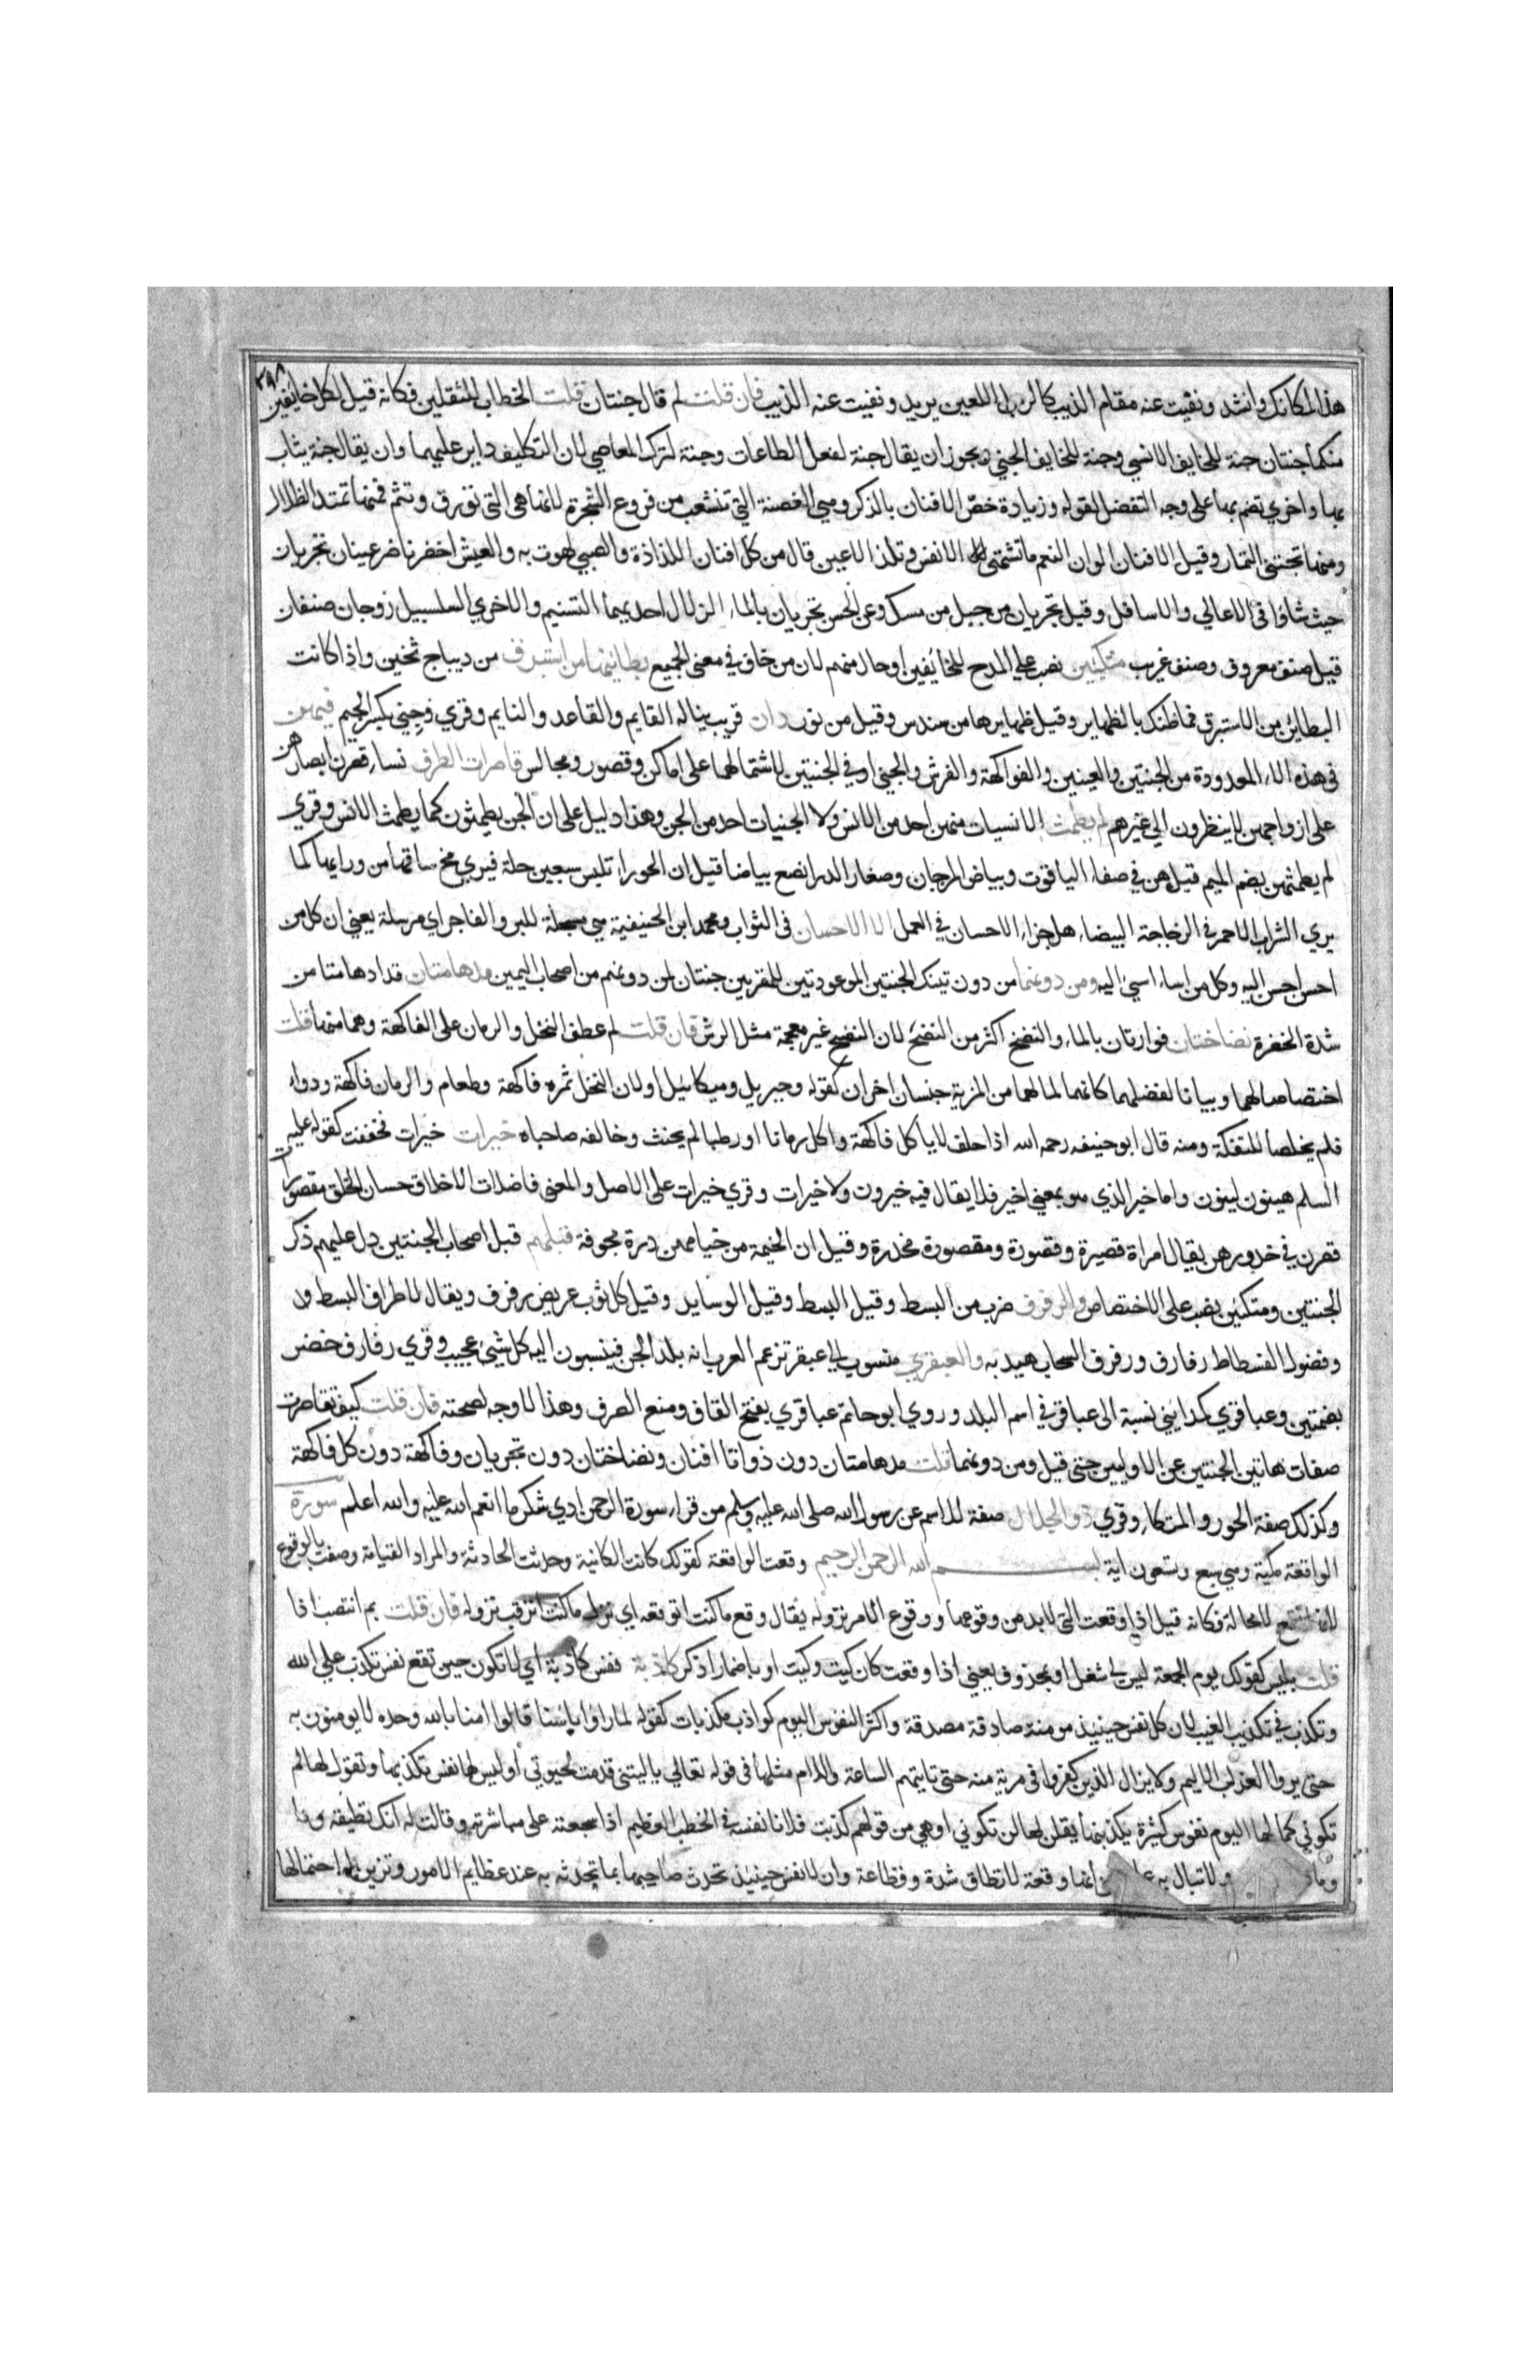 ٣٩٨
هذا لمكانك وانشد ونفيت عنه مقام الذيب كالرجل اللعين يريد ونفيت عنه الذيب فان قلت لم قال جنتان قلت الخطاب للثقلين فكانه قيل لكل خايفين
منكما جنتان جنة للخايف الانسي وجنة للخايف الجني ويجوز ان يقال جنة لفعل الطاعات وجنة لترك المعاصي لان التكليف داير عليهما وان يقال جنة يثاب
بها واخري تضم بها علي وجه التفضل لقوله وزيادة خصّ الافنان بالذكر وهي الغصنة التي تنشعب من فروع الشجرة لانها هي التي تورق وتثمر فمنها تمتد الظلال
ومنها تجتني الثمار وقيل الافنان الوان النعم ما تشتهي الانفس وتلذ الاعين قال من كل افنان اللذاذة والصبي لهوت به والعيش اخضر ناضر عينان تجريان
حيث شاؤا في الاعالي والاسافل وقيل تجريان من جبل من مسك وعن الحسن تجريان بالماء الزلال احديهما التسنيم والاخري السلسبيل زوجان صنفان
قيل صنف معروف وصنف غريب متكئين نصب علي المدح للخائفين او حال منهم لان من خاف في معني الجمع بطاينها من استبرق من ديباج ثخين واذا كانت
البطاين من الاستبرق فما ظنك بالظهاير وقيل ظهايرها من سندس وقيل من نور دان قريب يناله القايم والقاعد والنايم وقري وجِني بكسر الجيم فيهن
في هذه الالاء المعدودة من الجنتين والعينين والفواكهة والفرش والجني او في الجنتين لاشتمالهما علي اماكن وقصور ومجالس قاصرات الطرف نساء قصرن ابصارهن
علي ازواجهن لا ينظرون الي غيرهم لم يطمث الانسيات منهن احد من الانس ولا الجنيات احد من الجن وهذا دليل علي ان الجن يطمثون كما يطمث الانس وقري
لم يطمثهن بضم الميم قيل هن في صفاء الياقوت وبياض المرجان وصغار الدر انصع بياضا قيل ان الحوراء تلبس سبعين حلة فيري مخ ساقها من ورايها كما
يري الشراب الاحمر في الزجاجة البيضاء هل جزاء الاحسان في العمل الا الاحسان في الثواب ومحمد ابن الحنيفية هي مسجلة للبر والفاجر اي مرسلة يعني ان كل من
احسن احسن اليه وكل من اساء اسيئ اليه ومن دونهما من دون تينك الجنتين الموعودتين للمقربين جنتان لمن دونهم من اصحاب اليمين مدهامتان قد ادهامتا من
شدة الخضرة نضاختان فوارتان بالماء والنضخ اكثر من النضح لان النضح غير معجمة مثل الرش فان قلت لم عطف النخل والرمان علي الفاكهة وهما منها قلت
اختصاصا لهما وبيانا لفضلهما كانهما لما لهما من المزية جنسان اخران كقوله وجبريل وميكائيل او لان النخل ثمره فاكهة وطعام والرمان فاكهة ودواء
فلم يخلصا للتفكه ومنه قال ابو حنيفه رحمه الله اذا حلف لا ياكل فاكهة واكل رمانا او رطبا لم يحنث وخالفه صاحباه خيرات خيرات فخففت كقوله عليه
السلم هينون لينون واما خير الذي هو بمعني اخير فلا يقال فيه خيرون ولا خيرات وقري خيرات علي الاصل والمعني فاضلات الاخلاق حسان الخلق مقصورات
قصرن في خدورهن يقال امراة قصيرة وقصورة ومقصورة مخدرة وقيل ان الخيمة من خيامهن درة مجوفة قبلهم قبل اصحاب الجنتين دل عليهم ذكر
الجنتين ومتكئين نصب علي الاختصاص والرفرف ضرب من البسط وقيل البسط وقيل الوسايد وقيل كل ثوب عريض رفرف ويقال لاطراف البسط
وفضول الفسطاط رفارف ورفرف السحاب هيدبه والعبقري منسوب الي عبقر تزعم العرب انه بلد الجن فينسبون اليه كل شيئ عجيب وقري رفارف خضر
بضمتين وعباقري كمدايني نسبة الي عباقر في اسم البلد وروي ابو حاتم عباقري بفتح القاف ومنع الصرف وهذا لا وجه لصحته فان قلت كيف تقاصرت
صفات هاتين الجنتين عن الاوليين حتي قيل ومن دونهما قلت مدهامتان دون ذواتا افنان ونضاختان دون تجريان وفاكهة دون كل فاكهة
وكذلك صفة الحور والمتكاء وقري ذو الجلال صفة للاسم عن رسول الله صلي الله عليه وسلم من قراء سورة الرحمن ادي شكر ما انعم الله عليه والله اعلم سورة
الواقعة مكية وهي سبع وتسعون اية بسم الله الرحمن الرحيم وقعت الواقعة كقولك كانت الكاينة وحدثت الحادثة والمراد القيامة وصفت بالوقوع
لانها تقع لا محالة فكانه قيل اذا وقعت التي لا بد من وقوعها ووقوع الامر نزوله يقال وقع ما كنت اتوقعه اي نزل ما كنت اترقب نزوله فان قلت بم انتصب اذا
قلت بليس كقولك يوم الجمعة ليس لي شغل او بمحذوف يعني اذا وقعت كان كيت وكيت او باضمار اذكر كاذبة نفس كاذبة اي لا تكون حين تقع نفس تكذب علي الله
وتكذب في تكذيب الغيب لان كل نفس حينيذ مومنة صادقة مصدقة واكثر النفوس اليوم كواذب مكذبات كقوله لما راوا باسنا قالوا امنا بالله وحده لا يومنون به
حتي يروا العذاب الاليم ولا يزال الذين كفروا في مرية منه حتي تاتيهم الساعة واللام مثلها في قوله تعالي يا ليتني قدمت لحيوتي او ليس لها نفس تكذبها وتقول لها لم
تكوني كما لها اليوم نفوس كثيرة يكذبنها يقلن لها لن تكوني او هي من قولهم كذبت فلانا نفسه في الخطب العظيم اذا شجعته علي مباشرته وقالت له انك تطيقه وما
ولا تبال به انها وقعة لا تطاق شدة وفظاعة وان لا نفس حينيذ تحدث صاحبها بما تحدثه به عند عظايم الامور وتزين له احتمالها